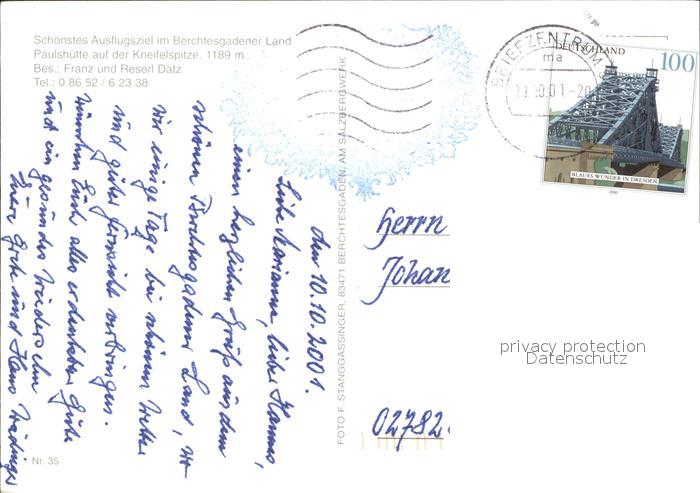 Schönstes Ausflugsziel im Berchtesgadener Land
Paulshütte auf der Kneifelspitze, 1189 m
Bes.: Franz und Reserl Datz
Tel.: 0 86 52 / 6 23 38
den 10.10.2001.
Liebe Marianne, lieber Hannes,
einen herzlichen Gruß aus dem
schönen Berchtesgadener Land, wo
wir einige Tage bei schönem Wetter
und guter verbringen.
wünschen Euch alles erdenklich Gute
und ein gesundes Wiedersehn
Eure und Hans
Nr. 35
FOTO F. STANGGASSINGER, 83471 BERCHTESGADEN, AM SALZBERGWERK
BRIEFZENTRUM
ma
-20
DEUTSCHLAND
100
BLAUES WUNDER IN DRESDEN
2000
Herrn
Johan
02782
privacy protection
Datenschutz